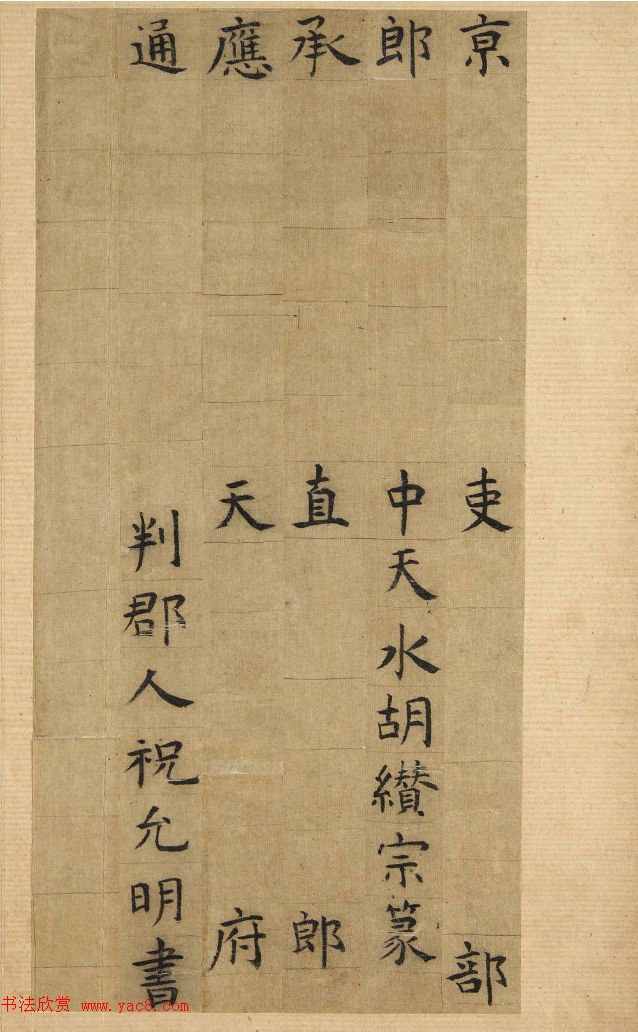 京吏部
郎中天水胡纉宗篆
承直郎
應天府
通判郡人祝允明書
书法欣赏 www.yac8.com